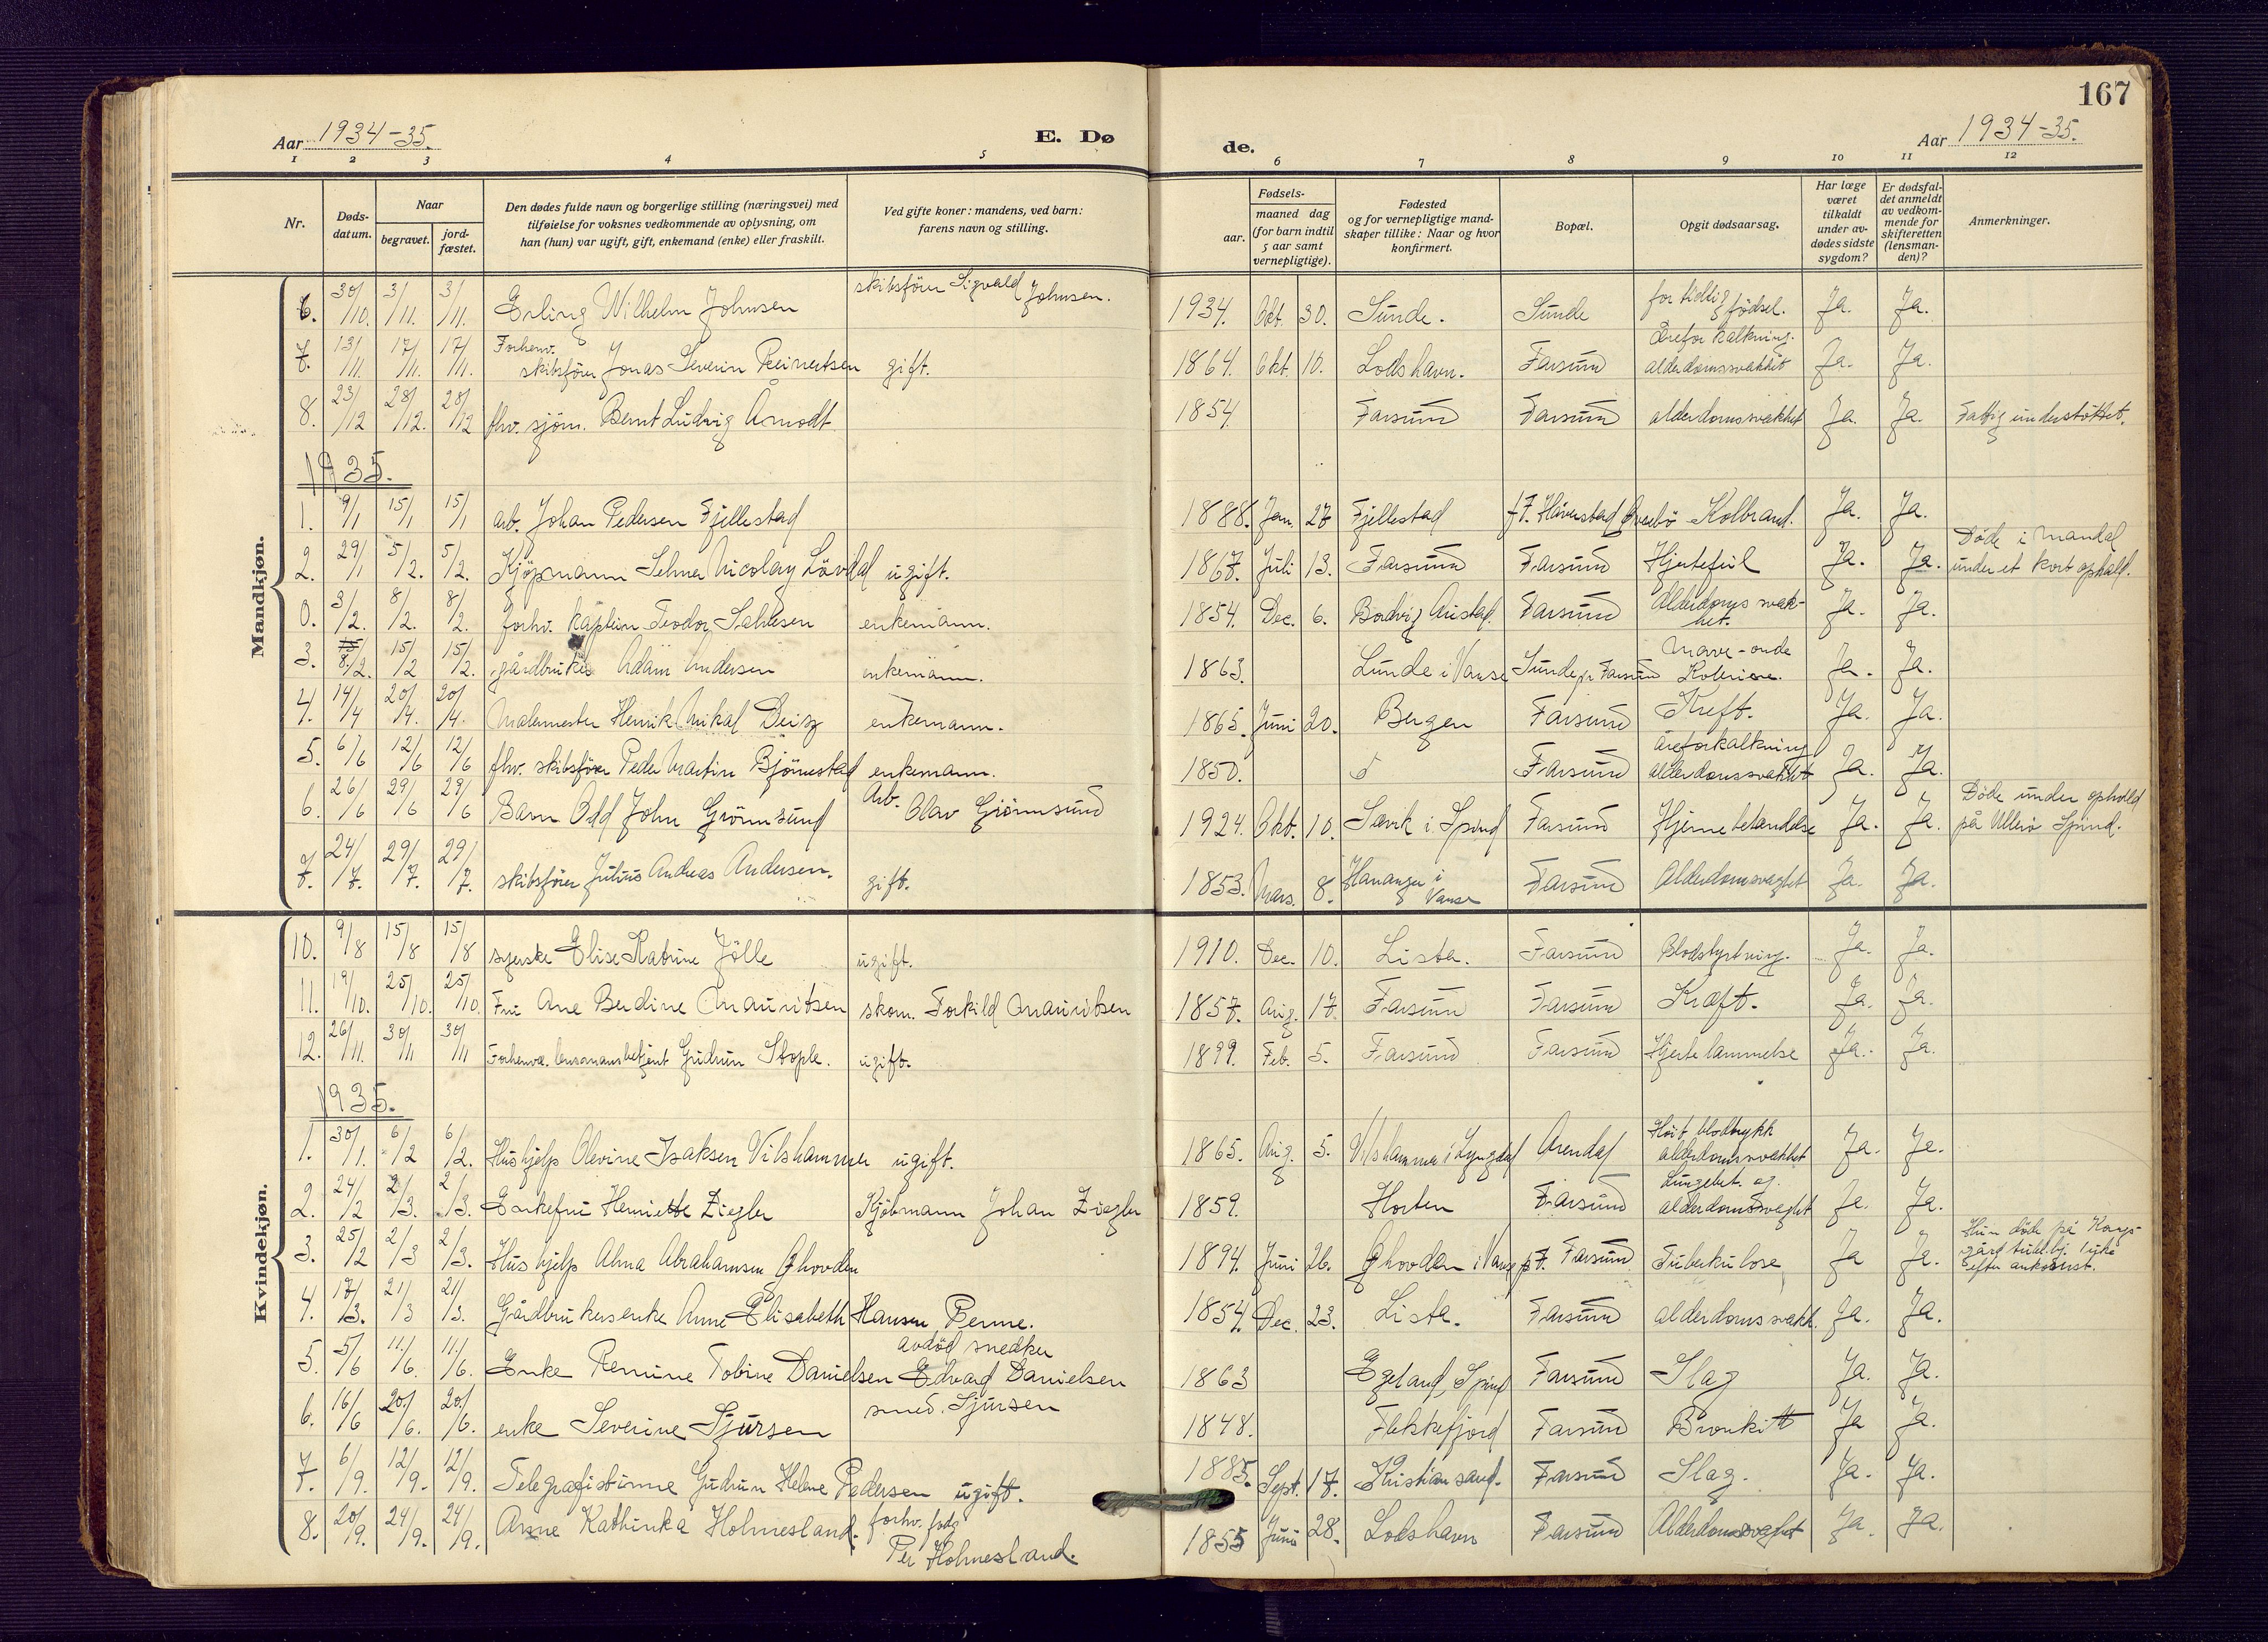 167
Aar 1934-35. E. Dø de. Aar 1934-35.
1 2 3 4 5 6 7 8 9 10 11 12
Nr. Døds-datum. Naar begravet. jord-fæstet. Den dødes fulde navn og borgerlige stilling (næringsvei) med tilføielse for voksnes vedkommende av oplysning, om han (hun) var ugift, gift, enkemand (enke) eller fraskilt. Ved gifte koner: mandens, ved barn: farens navn og stilling. Fødsels- aar. maaned dag (for barn indtil 5 aar samt vernepligtige). Fødested og for vernepligtige mandskaper tillike: Naar og hvor konfirmert. Bopæl. Opgit dødsaarsag. Har læge været tilkaldt under avdødes sidste sygdom? Er dødsfaldet anmeldt av vedkommende for skifteretten (lensmanden)? Anmerkninger.
Mandkjøn.
6. 30/10. 3/11. 3/11. Erling Wilhelm Johnsen skibsfører Sigvald Johnsen. 1934. Okt. 30. Sunde. Sunde for tidlig fødsel. Ja. Ja.
7. 13/11. 17/11. 17/11. Forhenv. skibsfører Jonas Severin Reinertsen gift. 1864. Okt. 10. Loshavn. Farsund Åreforkalkning. alderdomssvakhet Ja. Ja.
8. 23/12 28/12. 28/12 fhv. sjøm. Bernt Ludvig Åmodt 1854. Farsund Farsund alderdomssvakhet Ja. Ja. Fattig understøttet.
1935.
1. 9/1 15/1 15/1 arb. Johan Pedersen Fjellestad 1888. Jan. 27 Fjellestad f. F. Håverstad Øvrebø Kolbrand. Ja. Ja.
2. 29/1 5/2. 5/2. Kjøpmann Selmer Nicolay Løvdal ugift. 1867. Juli 13. Farsund Farsund Hjertefeil Ja. Ja. Døde i Mandal under et kort ophold.
0. 3/2. 8/2. 8/2. forhv. kaptein Teodor Salvesen enkemann. 1854. Dec. 6. Bodvig Austad. Farsund Alderdoms svakhet. Ja. Ja.
3. 8./2. 15/2 15/2. gårdbruker Adam Andersen enkemann. 1863. Lunde i Vanse Sunde pr Farsund Mave-onde Ja. Ja.
4. 14/4 20/4. 20/4. Malermester Henrik Mikal Deisz enkemann. 1865. Juni 20. Bergen Farsund Kreft. Ja. Ja.
5. 6/6 12/6 12/6 fhv. skibsfører Peder Martin Bjørnestad enkemann. 1850. Farsund åreforkalkning alderdomssvakhet Ja. Ja.
6. 26/6 29/6 29/6 Barn Odd John Grønnsund Arb. Olav Grønnsund 1924. Okt. 10. Sævik i Spind Farsund Hjernebetændelse Ja. Ja. Døde under ophold på Ullerø Spind.
7. 24/7. 29/7. 29/7. skibsfører Julius Andreas Andersen. gift. 1853. Mars. 8. Hananger i Vanse Farsund Alderdomsvaghet Ja. Ja.
Kvindekjøn.
10. 9/8 15/8 15/8 syerske Elise Katrine Jølle ugift. 1910. Dec. 10. Lista. Farsund Blodstyrtning. Ja. Ja.
11. 19/10. 25/10. 25/10. Fru Ane Berdine Mauritsen skom. Torkild Mauritsen 1857. Aug. 17. Farsund Farsund Kræft. Ja. Ja.
12. 26/11. 30/11 30/11 Forhenvæ. lensmansbetjent Gudrun Stople. ugift. 1899. Feb. 5. Farsund Farsund Hjertelammelse Ja. Ja.
1935.
1. 30/1. 6/2 6/2. Hushjelp Olevine Isaksen Vilshammer ugift. 1865. Aug. 5. Vilshammer i Lyngdal Arendal Høit blodtrykk alderdomssvakhet Ja. Ja.
2. 24/2 2/3. 2/3. Enkefru Henriette Ziegler Kjøbmann Johan Ziegler 1859. Horten Farsund Lungebet. og alderdomssvaghet Ja. Ja.
3. 25/2 2/3 2/3. Hushjelp Alma Abrahamsen Ghovden 1894. Juni 26. Ghovden i Vanse p.t. Farsund Tuberkulose Ja Ja. Hun døde på Kongsgård tub.hj. like efter ankomst.
4. 17/3. 21/3 21/3. Gårdbrukerenke Anne Elisabeth Hansen Penne. 1854. Dec. 23. Lista. Farsund alderdoms svakh. Ja. Ja.
5. 5/6 11/6. 11/6. Enke Remine Tobine Danielsen avdød snedker Edvard Danielsen 1863 Egeland, Spind Farsund Slag Ja. Ja.
6. 16/6 20/6. 20/6. enke Severine Sjursen smed. Sjursen 1848. Flekkefjord Farsund Bronkitt Ja Ja.
7. 6/9. 12/9. 12/9. Telegrafistinne Gudrun Helene Pedersen ugift. 1885. Sept. 17. Kristiansand. Farsund Slag. Ja. Ja.
8. 20/9. 24/9. 24/9. Anne Kathinka Holmesland. forhv. Per Holmesland. 1855 Juni 28. Loshavn Farsund Alderdomsvaghet Ja. Ja.